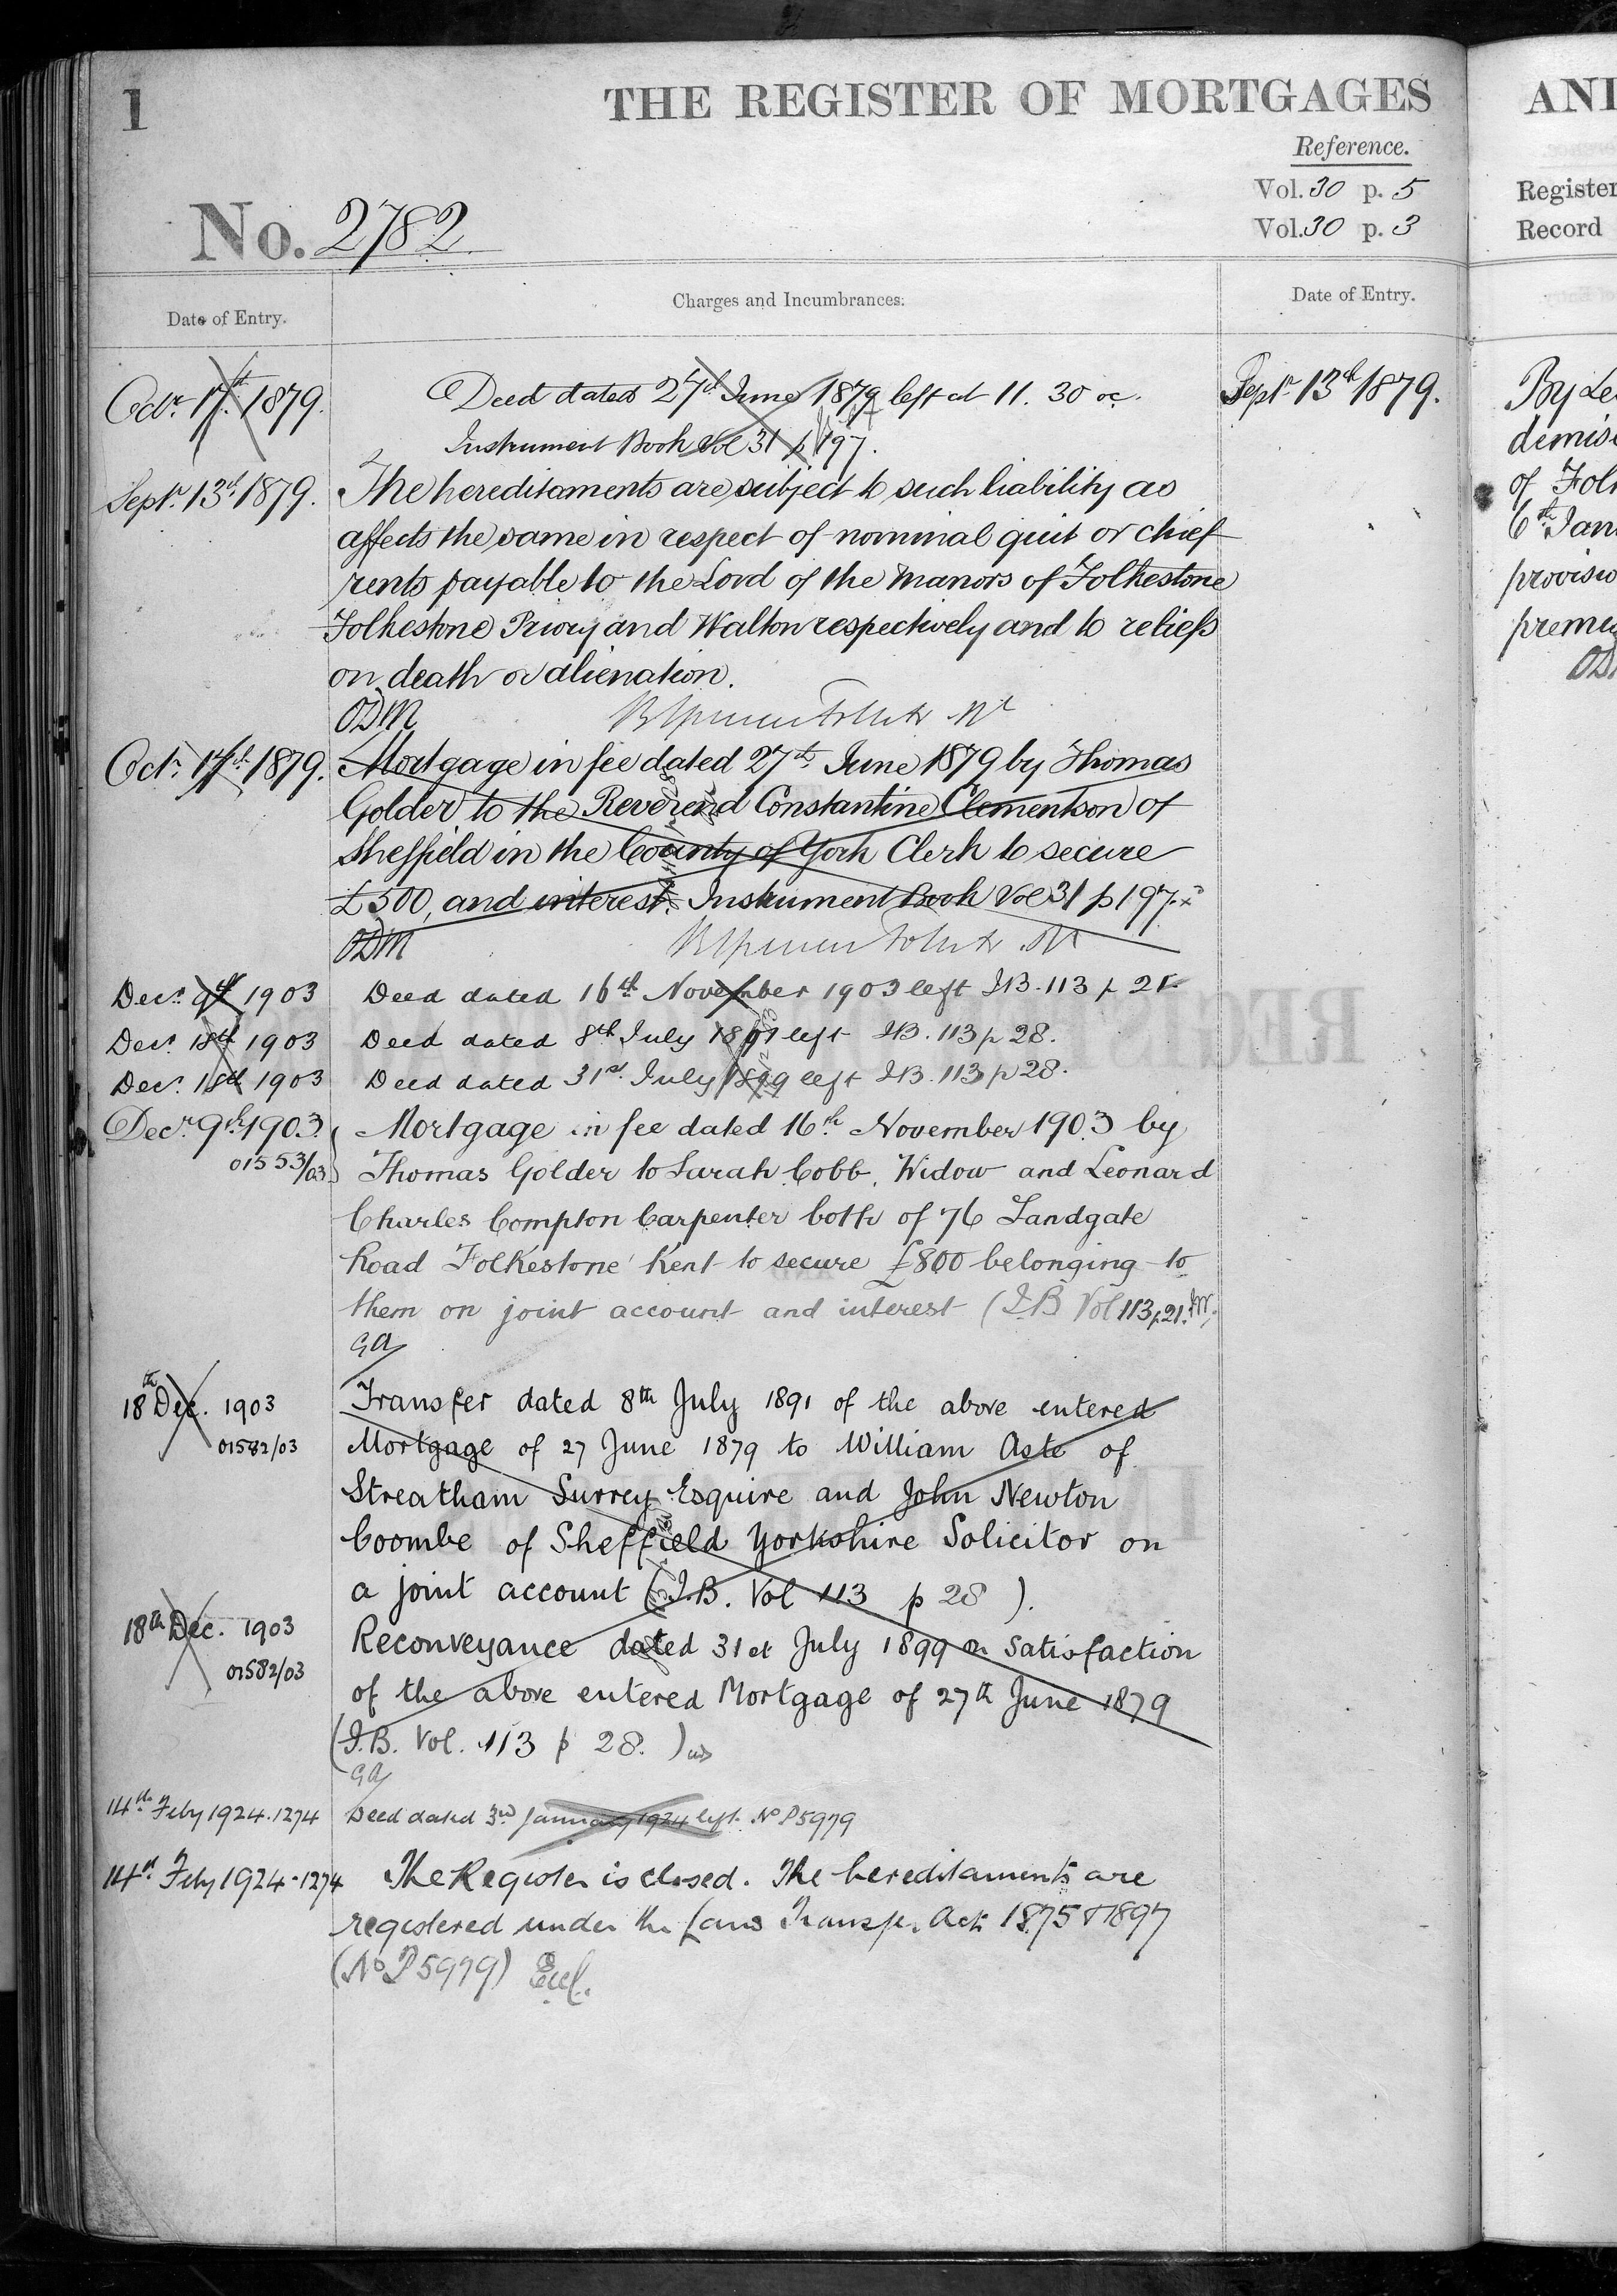 1
THE REGISTER OF MORTGAGES
Reference.
Vol. 30 p. 5
Vol. 30 p. 3
No. 2782
Date of Entry.
Charges and Incumbrances.
Date of Entry.
Octr. 17th 1879.
Deed dated 27th June 1879 left at 11. 30 oc.
Instrument Book Vol 31 p 197.
Septr. 13th 1879.
Septr. 13th 1879.
The hereditaments are subject to such liability as
affects the same in respect of nominal quit or chief
rents payable to the Lord of the Manors of Folkestone
Folkestone Priory and Walton respectively and to reliefs
on death or alienation.
ODM
Octr. 17th 1879.
Mortgage in fee dated 27th June 1879 by Thomas
Golder to the Reverend Constantine Clementson of
Sheffield in the County of York Clerk to secure
£500, and interest. Instrument Book Vol 31 p 197.
ODM
Decr. 9th 1903 Deed dated 16th November 1903 left I.B. 113 p 21
Decr. 18th 1903 Deed dated 8th July 1891 left I.B. 113 p 28.
Decr. 18th 1903 Deed dated 31st July 1899 left I.B. 113 p 28.
Decr. 9th 1903.
01553/03
Mortgage in fee dated 16th November 1903 by
Thomas Golder to Sarah Cobb, Widow and Leonard
Charles Compton Carpenter both of 76 Sandgate
Road Folkestone Kent to secure £800 belonging to
them on joint account and interest (I.B Vol 113 p. 21.
GA
18th Dec. 1903
01582/03
Transfer dated 8th July 1891 of the above entered
Mortgage of 27 June 1879 to William Aste of
Streatham Surrey Esquire and John Newton
Coombe of Sheffield Yorkshire Solicitor on
a joint account (I.B. Vol 113 p 28 ).
18th Dec. 1903
01582/03
Reconveyance dated 31st July 1899 on satisfaction
of the above entered Mortgage of 27th June 1879
(I.B. Vol. 113 p 28. )
GA
14th Feby 1924. 1274 Deed dated 3rd January 1924 left. No P5979
14th Feby 1924. 1274 The Register is closed. The hereditaments are
registered under the Land Transfer Acts 1875 & 1897
(No P5979)
AND
Register
Record
By Le
demise
of Folk
6th Jan
provisio
premis